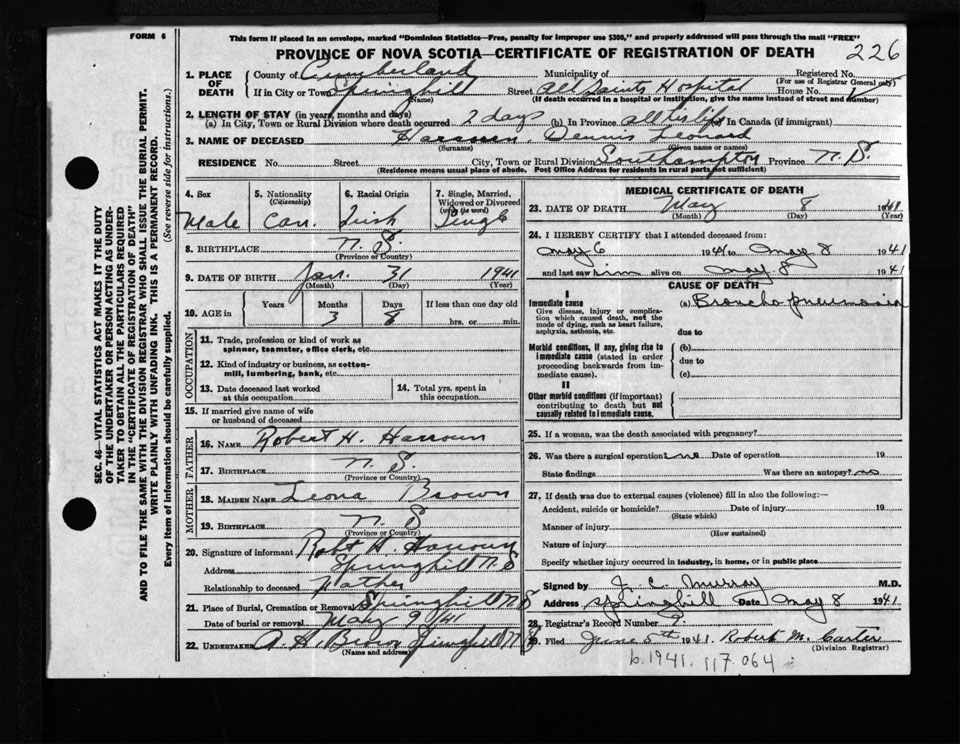 FORM 6
This form if placed in an envelope, marked "Dominion Statistics—Free, penalty for improper use $300," and properly addressed will pass through the mail "FREE"
PROVINCE OF NOVA SCOTIA—CERTIFICATE OF REGISTRATION OF DEATH
226
SEC. 46—VITAL STATISTICS ACT MAKES IT THE DUTY
OF THE UNDERTAKER OR PERSON ACTING AS UNDER-
TAKER TO OBTAIN ALL THE PARTICULARS REQUIRED
IN THE "CERTIFICATE OF REGISTRATION OF DEATH"
AND TO FILE THE SAME WITH THE DIVISION REGISTRAR WHO SHALL ISSUE THE BURIAL PERMIT.
WRITE PLAINLY WITH UNFADING INK. THIS IS A PERMANENT RECORD.
Every item of information should be carefully supplied. (See reverse side for instructions.)
1. PLACE OF DEATH
County of Cumberland Municipality of Registered No.
(For use of Registrar General only)
If in City or Town Springhill Street All Saints Hospital House No.
(Name) (If death occurred in a hospital or institution, give the name instead of street and number)
2. LENGTH OF STAY (in years, months and days)
(a) In City, Town or Rural Division where death occurred 2 days (b) In Province all his life In Canada (if immigrant)
3. NAME OF DECEASED Harroun, Dennis Leonard
(Surname) (Given name or names)
RESIDENCE No. Street City, Town or Rural Division Southampton Province N.S.
(Residence means usual place of abode. Post Office Address for residents in rural parts not sufficient)
4. Sex Male
5. Nationality (Citizenship) Can.
6. Racial Origin Irish
7. Single, Married, Widowed or Divorced (write the word) Single
8. BIRTHPLACE N.S.
(Province or Country)
9. DATE OF BIRTH Jan. 31 1941
(Month) (Day) (Year)
10. AGE in Years Months 3 Days 8 If less than one day old hrs. or min.
OCCUPATION
11. Trade, profession or kind of work as spinner, teamster, office clerk, etc.
12. Kind of industry or business, as cotton-mill, lumbering, bank, etc.
13. Date deceased last worked at this occupation
14. Total yrs. spent in this occupation
15. If married give name of wife or husband of deceased
FATHER
16. NAME Robert H. Harroun
17. BIRTHPLACE N.S.
(Province or Country)
MOTHER
18. MAIDEN NAME Leona Brown
19. BIRTHPLACE N.S
(Province or Country)
20. Signature of informant Robt H. Harroun
Address Springhill N.S
Relationship to deceased Father
21. Place of Burial, Cremation or Removal Springhill N.S
Date of burial or removal May 9/41
22. UNDERTAKER A. H. Brown Springhill N.S
(Name and address)
MEDICAL CERTIFICATE OF DEATH
23. DATE OF DEATH May 8 1941
(Month) (Day) (Year)
24. I HEREBY CERTIFY that I attended deceased from:
May 6 1941 to May 8 1941
and last saw him alive on May 8 1941
CAUSE OF DEATH
I
Immediate cause
Give disease, injury or complication which caused death, not the mode of dying, such as heart failure, asphyxia, asthenia, etc.
(a) Broncho pneumonia
due to
Morbid conditions, if any, giving rise to immediate cause (stated in order proceeding backwards from immediate cause).
(b)
due to
(c)
II
Other morbid conditions (if important) contributing to death but not causally related to immediate cause.
25. If a woman, was the death associated with pregnancy?
26. Was there a surgical operation no Date of operation 19
State findings Was there an autopsy? no
27. If death was due to external causes (violence) fill in also the following:—
Accident, suicide or homicide? Date of injury 19
(State which)
Manner of injury
(How sustained)
Nature of injury
Specify whether injury occurred in industry, in home, or in public place
Signed by J. C. Murray M.D.
Address Springhill Date May 8 1941
28. Registrar's Record Number 9.
29. Filed June 5th 1941. Robert M. Carter
(Division Registrar)
b.1941. 117.064